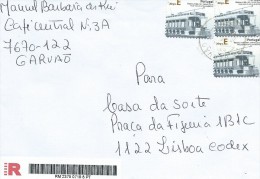 Manuel Barbara
Café central N.3A
7670-122
GARVÃO
Portugal
E
Portugal
E
Portugal
E
Para
Casa da Sorte
Praça da Figueira 1B+C
1122 Lisboa codex
R